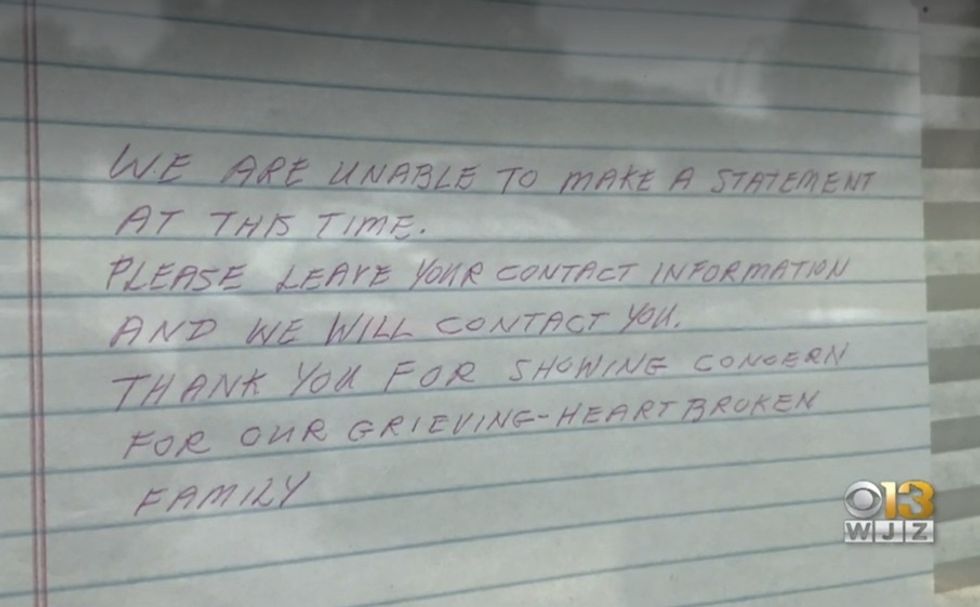 WE ARE UNABLE TO MAKE A STATEMENT
AT THIS TIME.
PLEASE LEAVE YOUR CONTACT INFORMATION
AND WE WILL CONTACT YOU.
THANK YOU FOR SHOWING CONCERN
FOR OUR GRIEVING-HEARTBROKEN
FAMILY
13
WJZ